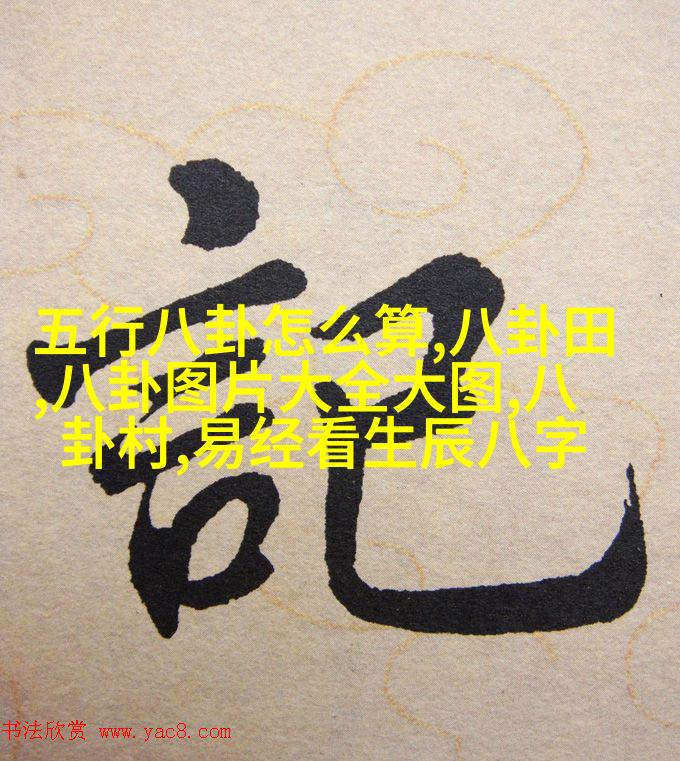 記
五行八卦怎么算,八卦田
,八卦图片大全大图,八
卦村,易经看生辰八字
书法欣赏 www.yac8.com